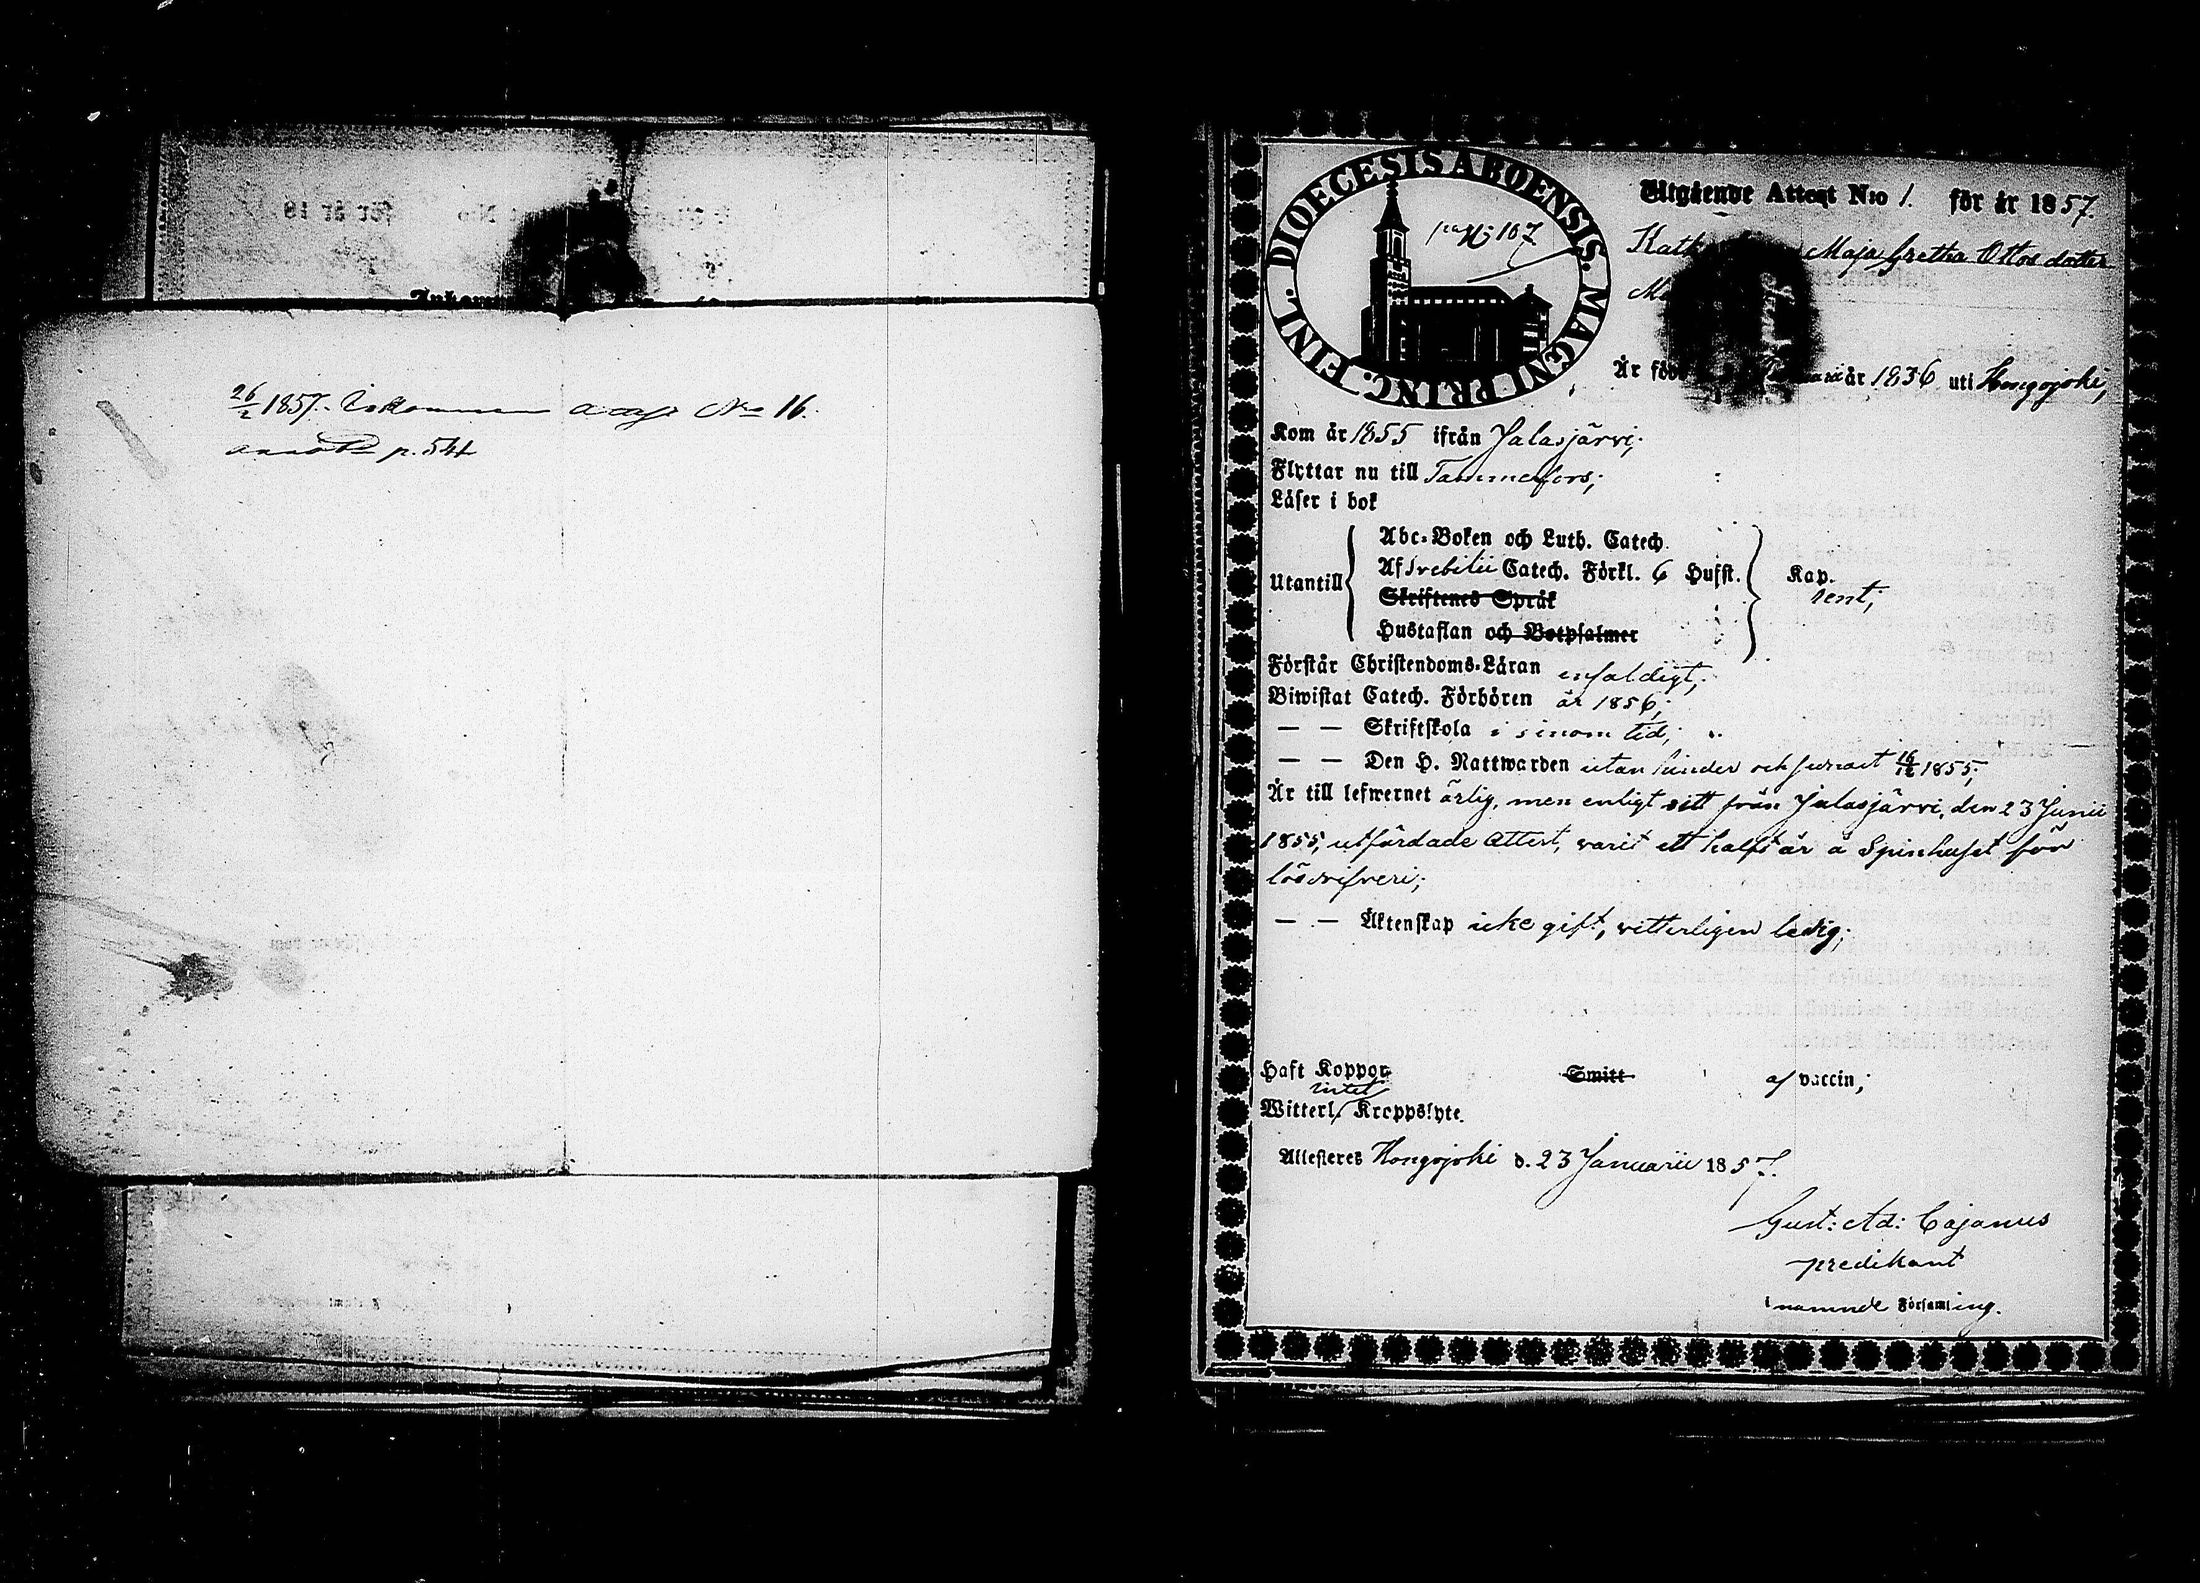 26/2 1857. Inkommen N:o 16.
annot. p. 541
DIOECESIS ABOENSIS. MAGNI PRINC. FINL.
Utgående Attest N:o 1. för år 1857.
Maja Gretha Ottos dotter
Är född år 1836 uti Hongojoki,
Kom år 1855 ifrån Jalasjärvi;
Flyttar nu till Tammerfors;
Läser i bok
Abc-Boken och Luth. Catech.
Utantill Af Svebilii Catech. Förkl. 6 Hufst. Kap.
rent;
Skriftenes Språk
Hustaflan och Botpsalmer
Förstår Christendoms-Läran enfaldigt;
Biwistat Catech. Förhören år 1856;
— — Skriftskola i sinom tid;
— — Den H. Nattwarden utan hinder och senast 16/12 1855;
Är till lefwernet ärlig, men enligt sitt från Jalasjärvi, den 23 Junii
1855, utfärdade Attest, varit ett halft år å Spinhuset för
lösdrifveri;
— — Äktenskap icke gift, vitterligen ledig;
Haft Koppor Smitt af vaccin;
intet
Witterl. Kroppslyte.
Attesteres Hongojoki d. 23 Januarii 1857.
Gust: Ad: Cajanus
predikant
i namnde Församling.